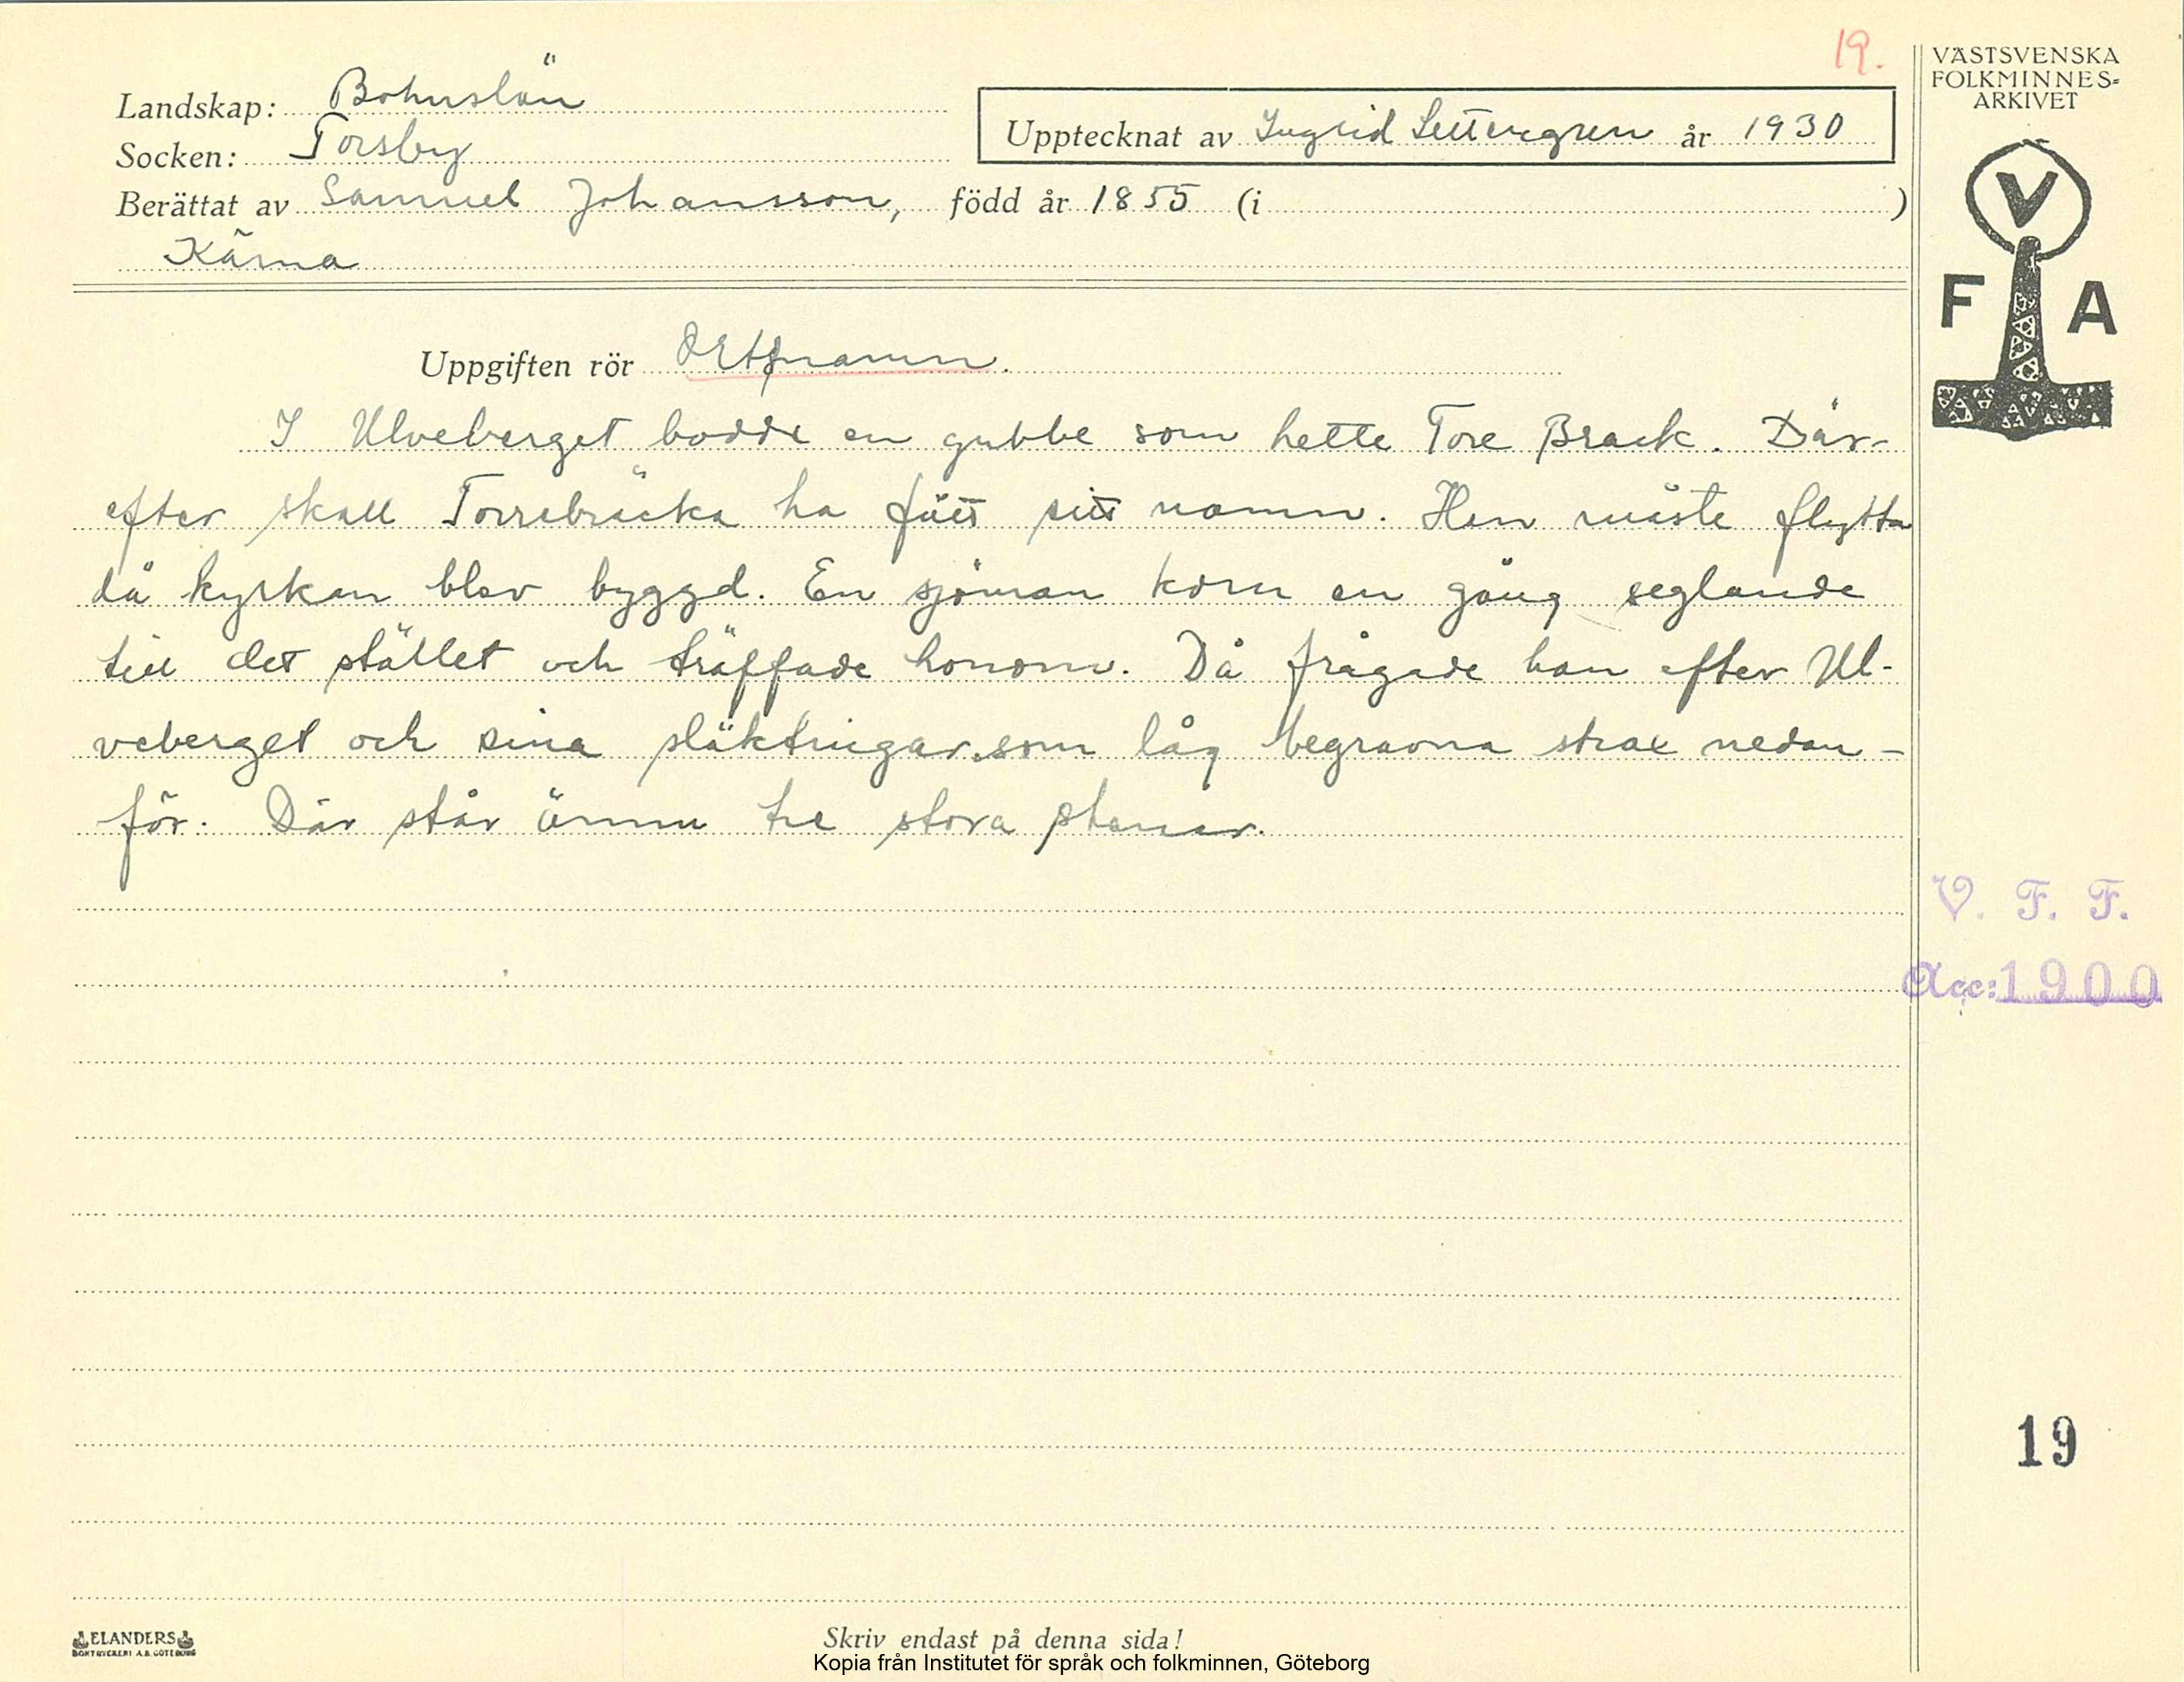 19.
VÄSTSVENSKA
FOLKMINNES-
ARKIVET
Landskap: Bohuslän
Upptecknat av Ingrid Settergren år 1930
Socken: Torsby
Berättat av Samuel Johansson, född år 1855 (i )
Kärna
V
F A
Uppgiften rör Ortnamn.
I Ulveberget bodde en gubbe som hette Tore Brack. Där-
efter skall Torrebräcka ha fått sitt namn. Han måste flytta
då kyrkan blev byggd. En sjöman kom en gång seglande
till det stället och träffade honom. Då frågade han efter Ul-
veberget och sina släktingar, som låg begravna strax nedan-
för. Där står ännu tre stora stenar.
V. F. F.
Acc: 1900
19
ELANDERS
BOKTRYCKERI A.B. GÖTEBORG
Skriv endast på denna sida!
Kopia från Institutet för språk och folkminnen, Göteborg